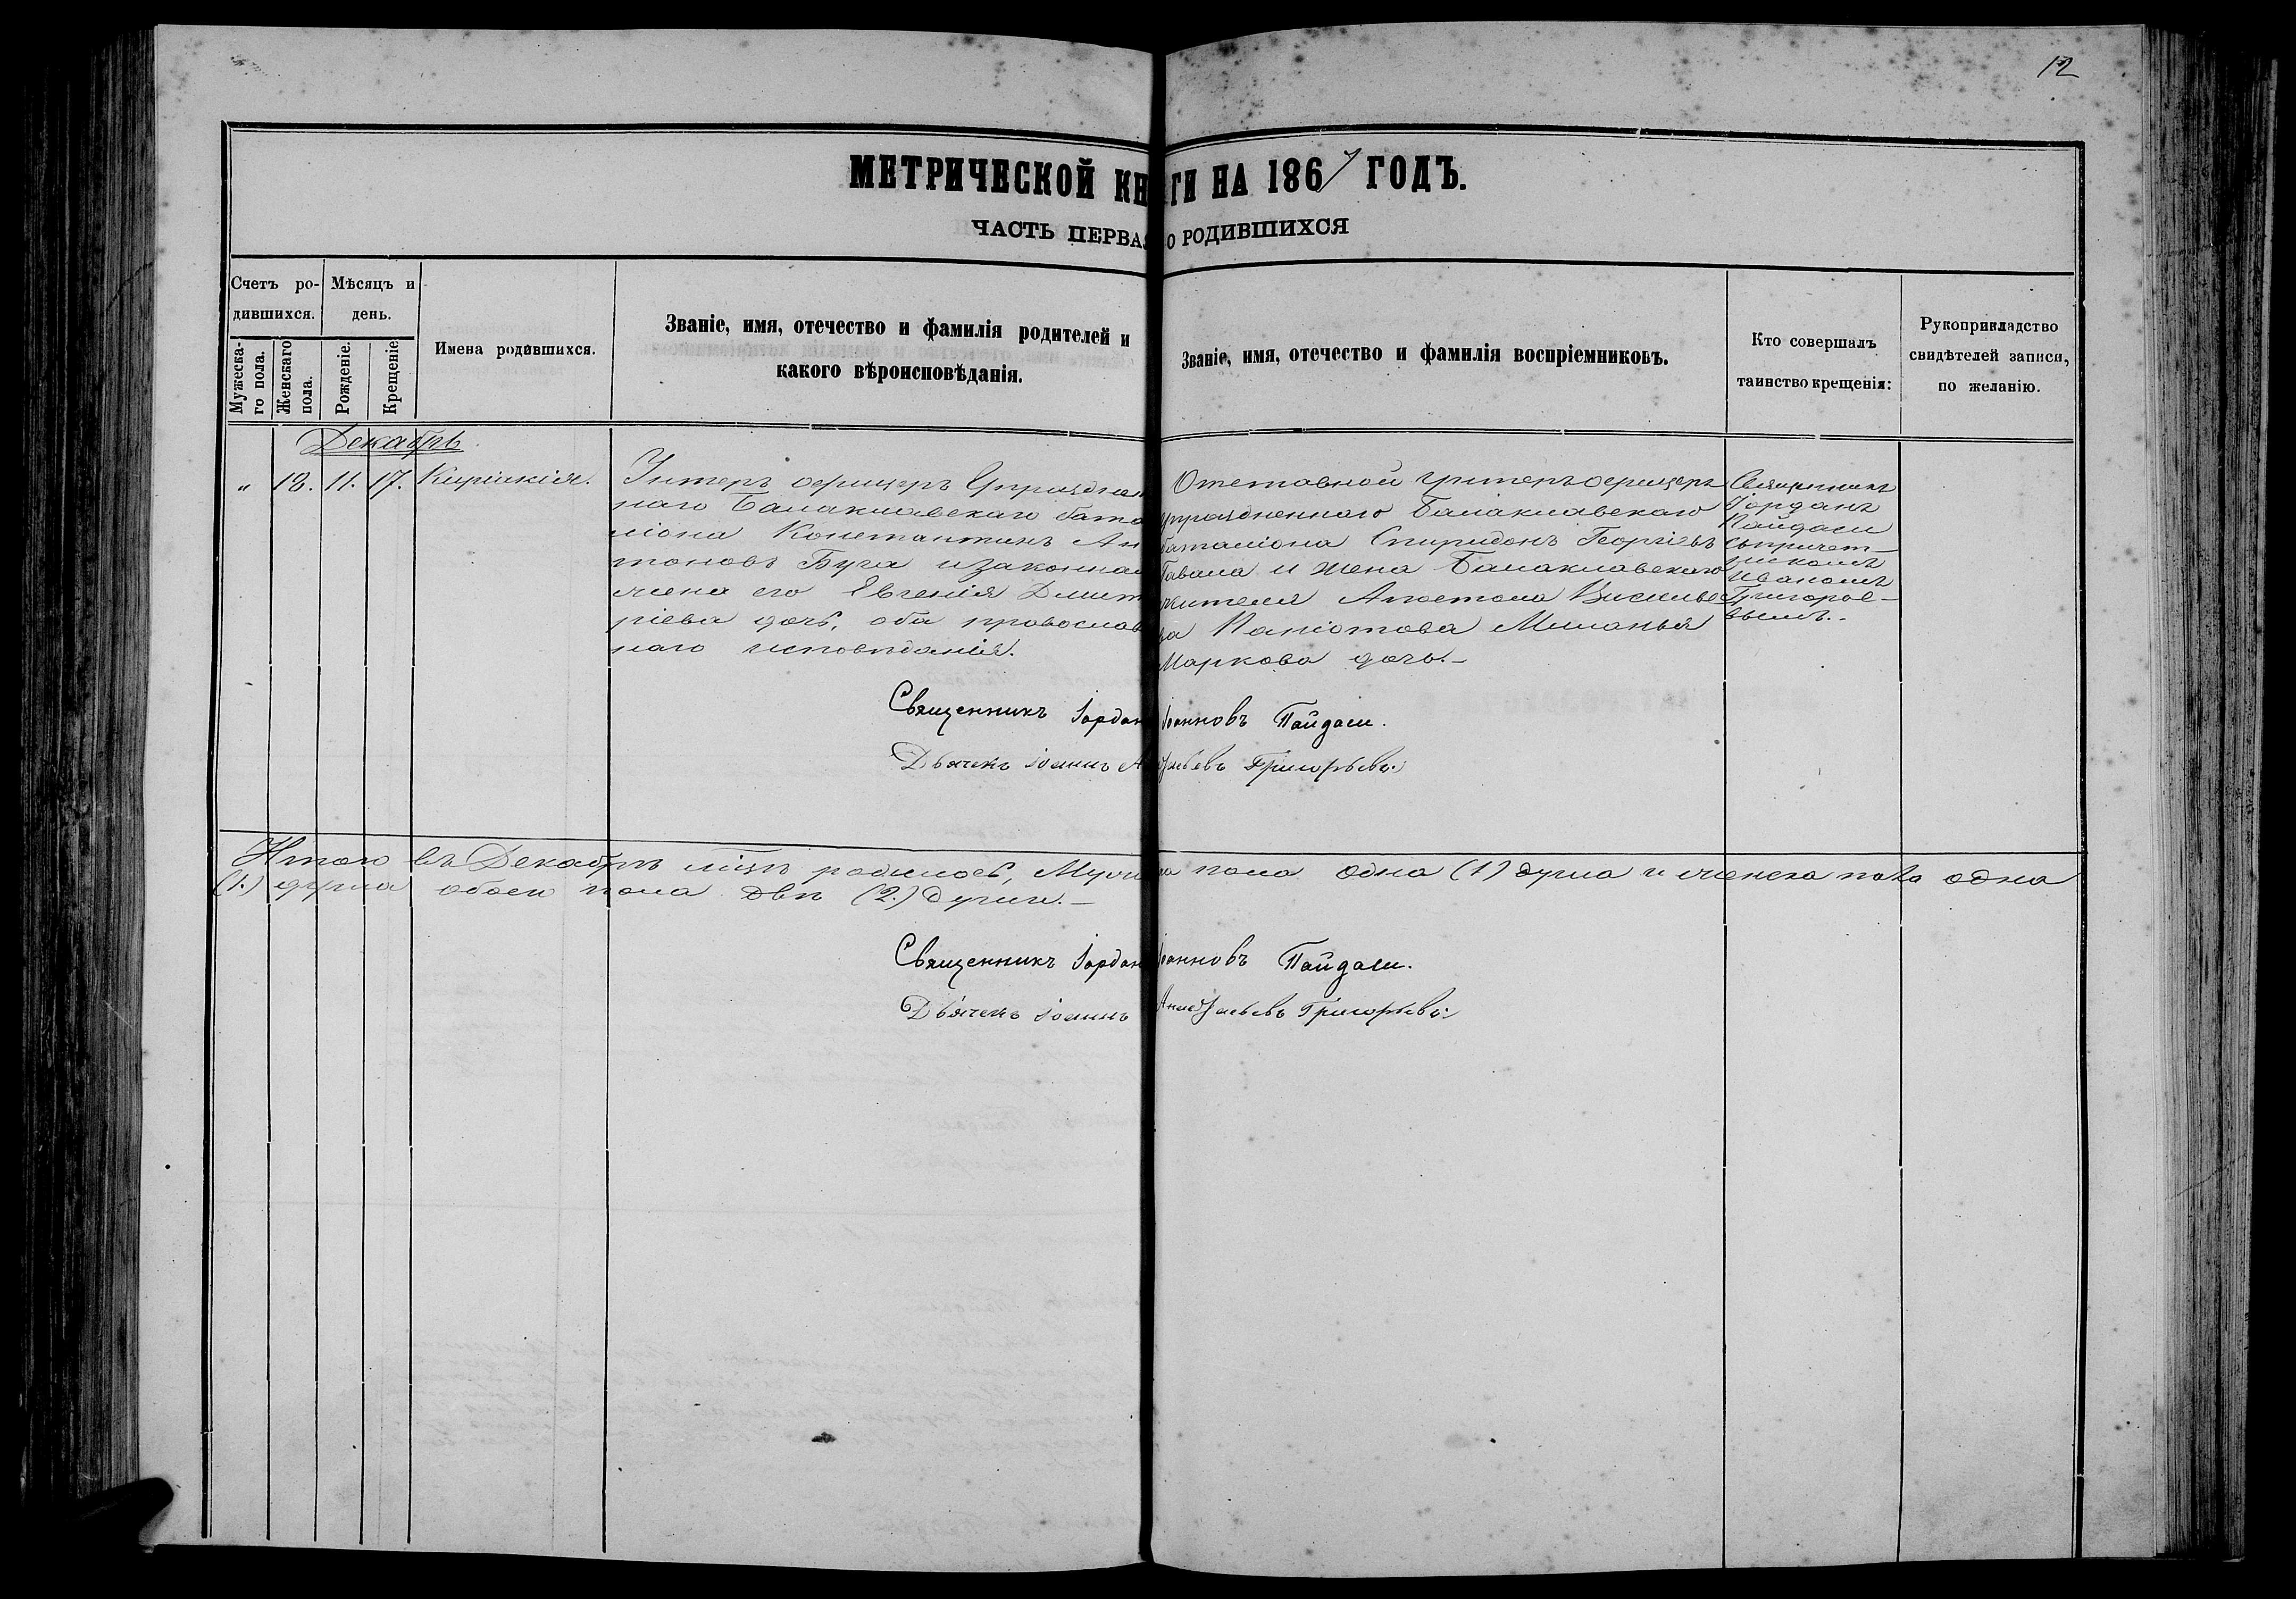 12
МЕТРИЧЕСКОЙ КНИГИ НА 1867 ГОДЪ.
ЧАСТЬ ПЕРВАЯ О РОДИВШИХСЯ
Счетъ ро-
дившихся.
Мѣсяцъ и
день.
Мужеска-
го пола.
Женскаго
пола.
Рожденіе.
Крещеніе
Имена родившихся.
Званіе, имя, отечество и фамилія родителей и
какого вѣроисповѣданія.
Званіе, имя, отечество и фамилія воспріемниковъ.
Кто совершалъ
таинство крещенія:
Рукоприкладство
свидѣтелей записи,
по желанію.
Декабрь
" 18. 11. 17. Киріакія.
Унтеръ офицеръ Упразднен
наго Балаклавскаго бата
ліона Константинъ Ан
тоновъ Буга и законная
жена его Евгенія Дмит
ріева дочь, оба православ
наго исповѣданія.
Отставной унтеръ офицеръ
упраздненнаго Балаклавскаго
баталіона Спиридонъ Георгіевъ
Гавала и жена Балаклавскаго
жителя Апостола
ва Паніотова Миланья
Маркова дочь.-
Священникъ
Іорданъ
Пайдаси
съ причет-
никомъ
Иваномъ
Григорье-
вымъ.-
Священникъ Іордан Іоанновъ Пайдаси.
Дьячекъ Іоаннъ Григорьевъ.
Итого въ Декабрѣ мѣцѣ родилось, Мужска пола одна (1) душа и женска пола одна
(1.) душа обоего пола двѣ (2.) души.-
Священникъ Іордан Іоанновъ Пайдаси.
Дьячекъ Іоаннъ Григорьевъ.